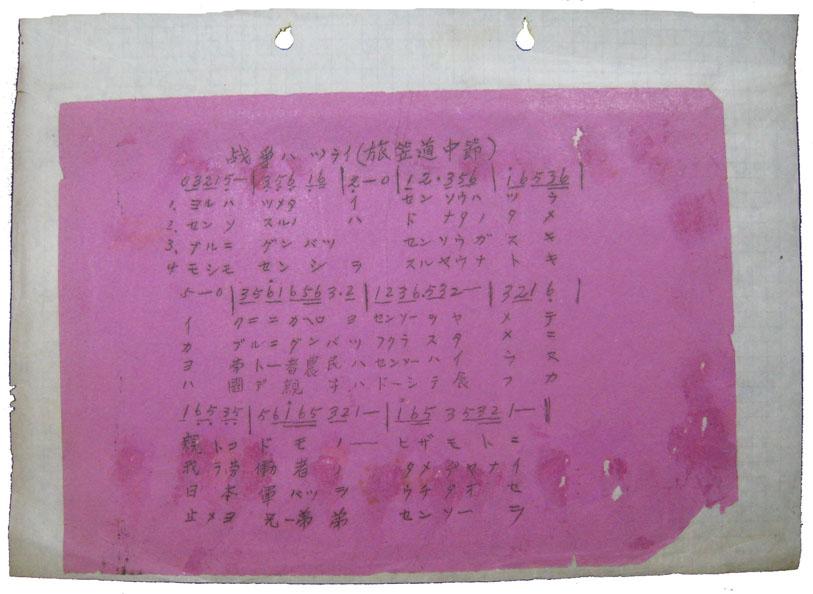 战争ハツライ(旅笠道中節)
03215—|356 16|2—0|12·356|16536|
1. ヨルハ ツメタ イ センソウハ ツ ラ
2. センソ スルノ ハ ド ナタノ タ メ
3. ブルニ グンバツ センソウガ ス キ
4. モシモ センシ ラ スルヤウナ ト キ
5—0|356165 63·2|1236·532—|321 6|
イ クニニカヘロ ヨ センソーヲ ヤ メ テ
カ ブルニグンバツ フクラス タ メ ニ
ヨ 帝ト一者農民ハ センソーハイ ラ ヌ
ハ 國デ親子ハ ドーシテ辰 フ カ
165 35|56165 321—|165 3532 1—‖
親トコ ドモノ— ヒザモト ニ
我ラ労働者ノ タメヂヤナ イ
日本軍バツヲ ウチダオ セ
止メヨ 兄一弟弟 センソー ヲ